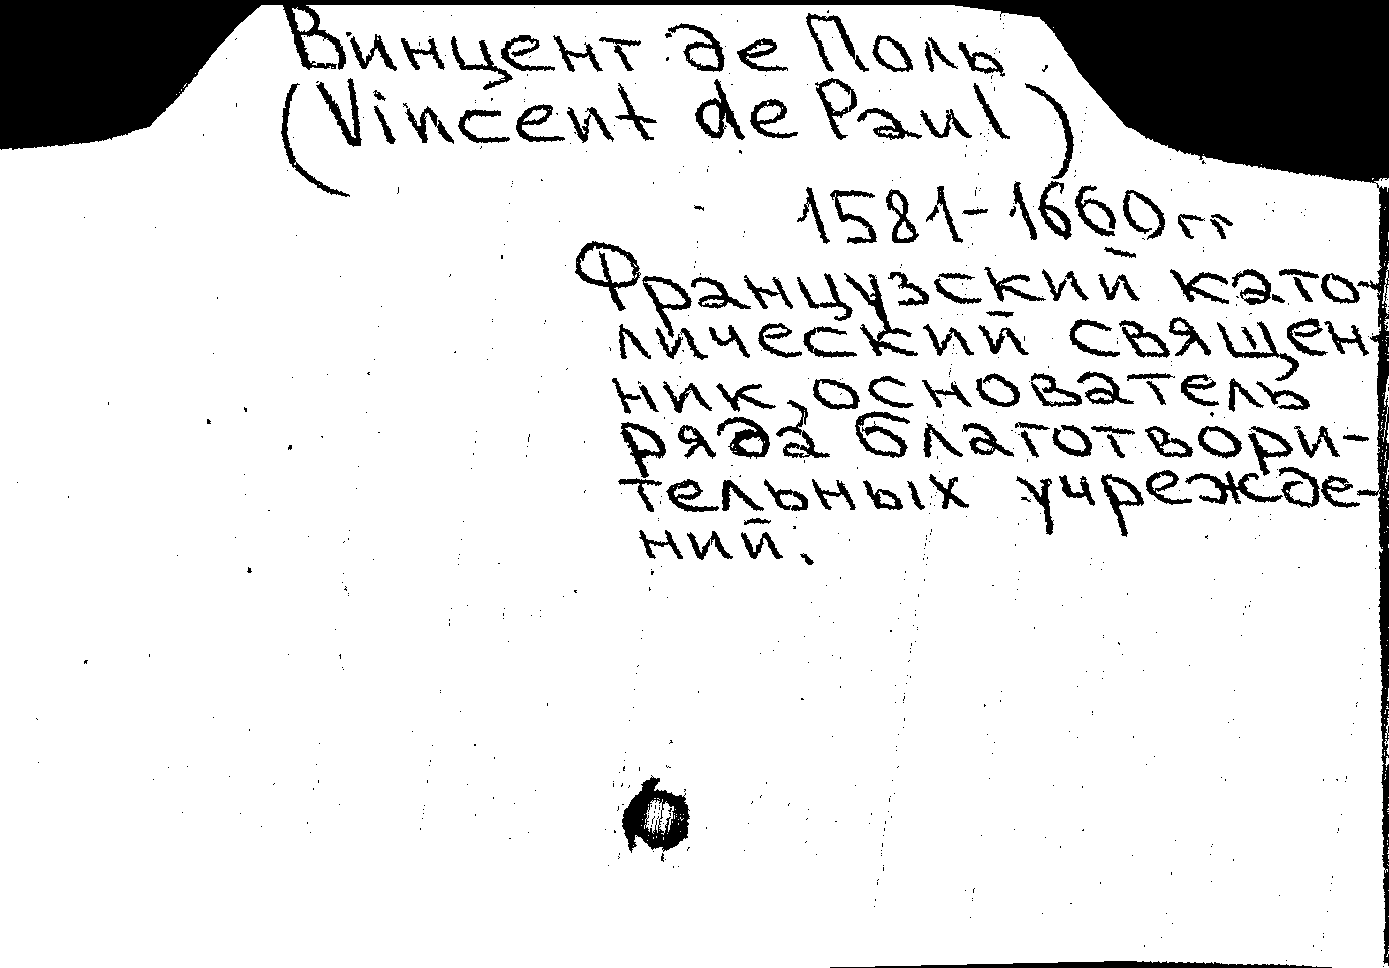 Винцент де Поль
(Vincent de Paul)
1581-1660 гг
Французский като-
лический священ-
ник, основатель
ряда благотвори-
тельных учрежде-
ний.